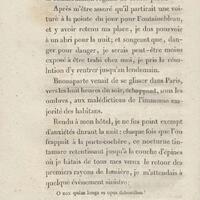 Après m'être assuré qu'il partirait une voiture à la pointe du jour pour Fontainebleau, et y avoir retenu ma place, je dus pourvoir à un abri pour la nuit; et songeant que, danger pour danger, je serais peut-être moins exposé à être trahi chez moi, je pris la résolution d'y rentrer jusqu'au lendemain.
Buonaparte venait de se glisser dans Paris, vers les huit heures du soir, échappant, sous les ombres, aux malédictions de l'immense majorité des habitans.
Rendu à mon hôtel, je ne fus point exempt d'anxiétés durant la nuit: chaque fois que l'on frappait à la porte-cochère, ce nocturne tintamare retentissant jusqu'à la couche d'épines où je hâtais de tous mes vœux le retour des premiers rayons de lumière, je m'attendais à quelque événement sinistre:
O nox quàm longa es